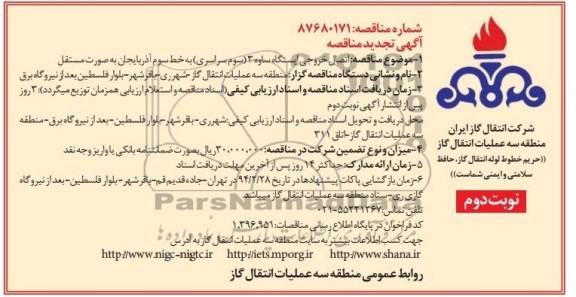 شماره مناقصه: ۸۷۶۸۰۱۷۱
آگهی تجدید مناقصه
۱-موضوع مناقصه: اتصال خروجی ایستگاه ساوه ۳ (سوم سراسری) به خط سوم آذربایجان به صورت مستقل
۲-نام و نشانی دستگاه مناقصه گزار: منطقه سه عملیات انتقال گاز-شهرری-باقرشهر-بلوار فلسطین بعد از نیروگاه برق
۳-زمان دریافت اسناد مناقصه و اسناد ارزیابی کیفی (اسناد مناقصه و استعلام ارزیابی همزمان توزیع میگردد): ۳ روز
پس از انتشار آگهی نوبت دوم
محل دریافت و تحویل اسناد مناقصه و اسناد ارزیابی کیفی: شهرری-باقرشهر-بلوار فلسطین-بعد از نیروگاه برق-منطقه
سه عملیات انتقال گاز-اتاق ۳۱۱
۴-میزان و نوع تضمین شرکت در مناقصه: ریال بصورت ضمانتنامه بانکی یا واریز وجه نقد
۵-زمان ارائه مدارک: حداکثر ۱۴ روز پس از آخرین مهلت دریافت اسناد
۶-زمان بازگشایی پاکات پیشنهادها در تاریخ ۹۴/۲/۲۸ در تهران-جاده قدیم قم-باقرشهر-بلوار فلسطین-بعد از نیروگاه
گازی ری-ستاد منطقه سه عملیات انتقال گاز میباشد
تلفن تماس: ۰۲۱-۵۵۲۳۱۲۶۷
کد فراخوان در پایگاه اطلاع رسانی مناقصات: ۱,۳۹۶,۹۵۱
جهت کسب اطلاعات بیشتر به سایت منطقه سه عملیات انتقال گاز به آدرس
http://www.nigc-nigtc.ir http://iets.mporg.ir http://www.shana.ir
روابط عمومی منطقه سه عملیات انتقال گاز
شرکت انتقال گاز ایران
منطقه سه عملیات انتقال گاز
((حریم خطوط لوله انتقال گاز، حافظ
سلامتی و ایمنی شماست))
نوبت دوم
ParsNamadData